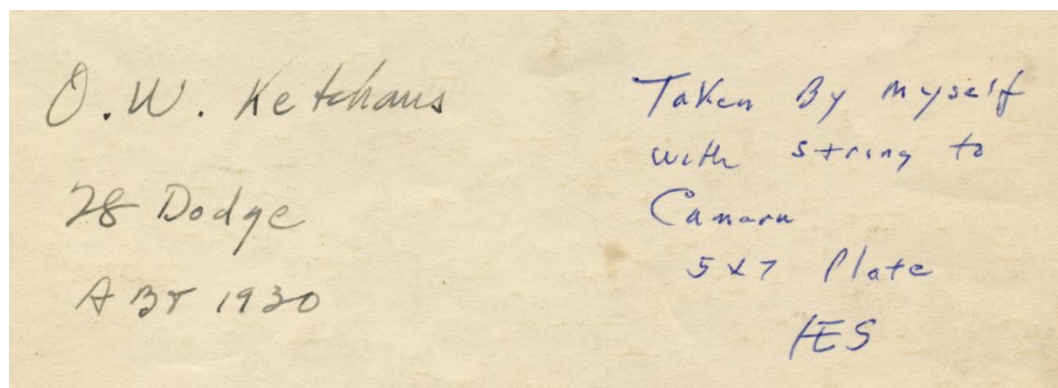 O. W. Ketchaus
28 Dodge
ABT 1930
Taken By Myself
with string to
Camara
5x7 Plate
HES